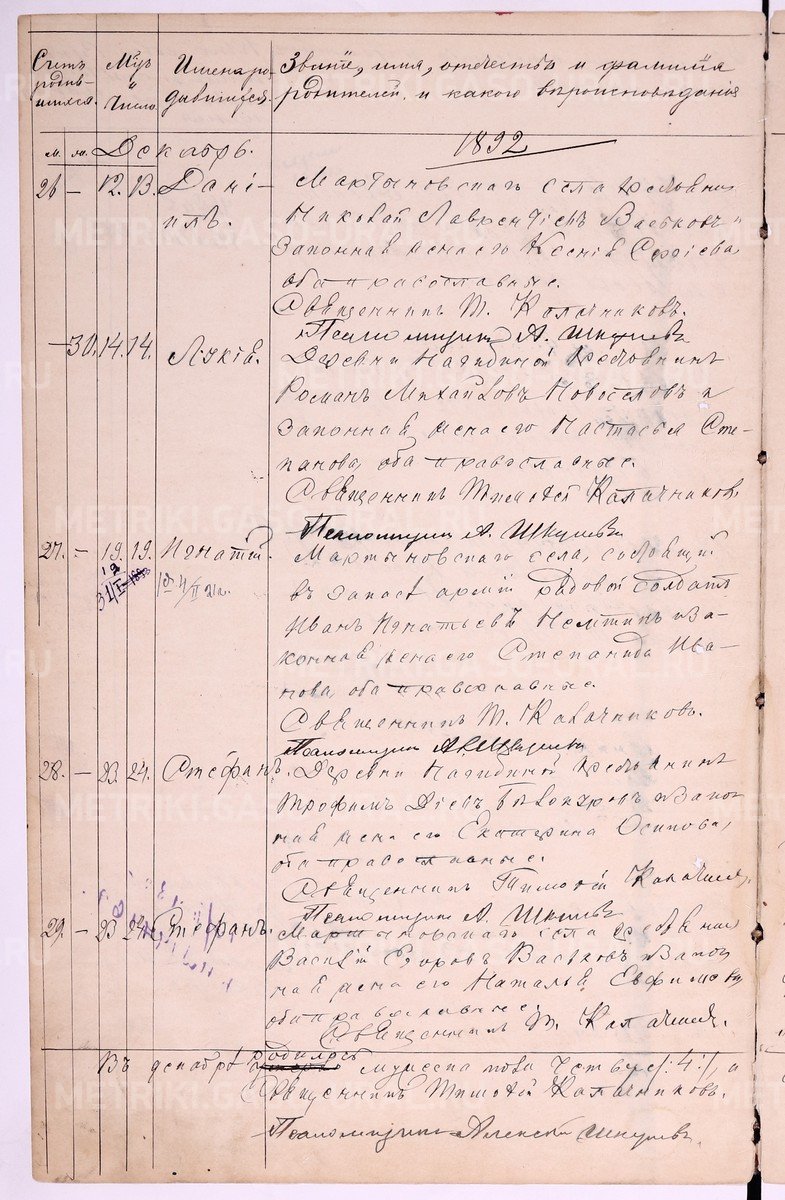 Счетъ родив-шихся.
Мѣс. и Число
Имена ро-дившихся.
Званіе, имя, отчество и фамилія
родителей, и какого вѣроисповѣданія
м. ж. Декабрь.
1892
26 — 12. 13. Дані-илъ.
Мартыновскаго села крестьянинъ
Николай Лаврентьевъ Васьковъ и
законная жена его Ксенія Сергіева,
оба православные.
Священникъ Т. Калачниковъ.
Псаломщикъ А. Шкуневъ
— 30. 14. 14. Лукія.
Деревни Нагибиной крестьянинъ
Романъ Михайловъ Новоселовъ и
законная жена его Настасья Сте-
панова, оба православные.
Священникъ Тимоѳей Калачниковъ.
Псаломщикъ А. Шкуневъ
27. — 19. 19. Игнатій.
Мартыновскаго села, состоящій
въ запасѣ арміи рядовой солдатъ
Иванъ Игнатьевъ и за-
конная жена его Степанида Ива-
нова, оба православные.
Священникъ Т. Калачниковъ.
Псаломщикъ А. Шкуневъ
28. — 23. 24. Стефанъ.
Деревни Нагибиной крестьянинъ
Трофимъ и закон
ная жена его Екатерина Осипова,
оба православные.
Священникъ Тимоѳей Калачник.
Псаломщикъ А. Шкуневъ
29. — 23 24. Стефанъ.
Мартыновскаго села крестьянинъ
Василій Егоровъ Васьковъ и закон
ная жена его Наталья Евфимова
оба православные.
Священникъ Т. Калачник.
Въ декабрѣ родилось мужеска пола четыре /:4:/, а
Священникъ Тимоѳей Калачниковъ.
Псаломщикъ Алексѣй Шкуневъ.